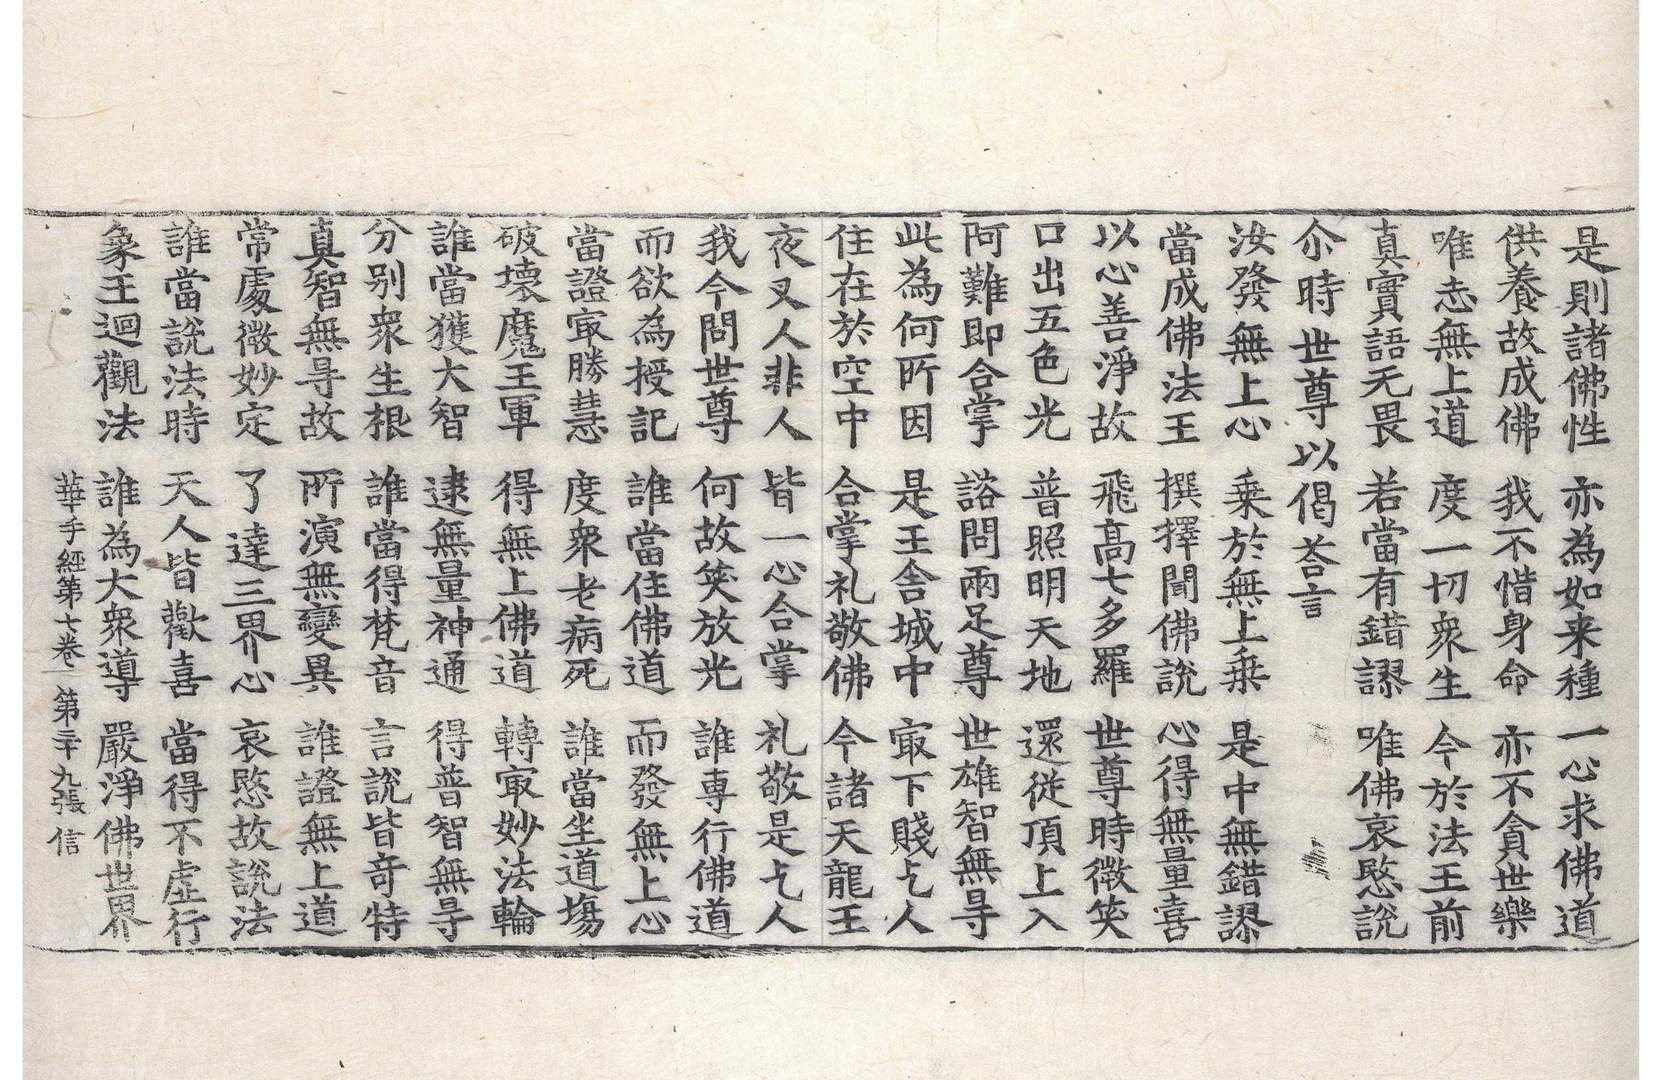 是則諸佛性 亦為如来種 一心求佛道
供養故成佛 我不惜身命 亦不貪世樂
唯志無上道 度一切衆生 今於法王前
真實語无畏 若當有錯謬 唯佛哀愍說
尒時世尊以偈荅言
汝發無上心 乗於無上乗 是中無錯謬
當成佛法王 撰擇聞佛說 心得無量喜
以心善淨故 飛高七多羅 世尊時微笑
口出五色光 普照明天地 還従頂上入
阿難即合掌 諮問兩足尊 世雄智無㝵
此為何所因 是王舎城中 㝡下賤乞人
住在於空中 合掌礼敬佛 今諸天龍王
夜叉人非人 皆一心合掌 礼敬是乞人
我今問世尊 何故笑放光 誰専行佛道
而欲為授記 誰當住佛道 而發無上心
當證㝡勝慧 度衆老病死 誰當坐道塲
破壞魔王軍 得無上佛道 轉㝡妙法輪
誰當獲大智 逮無量神通 得普智無㝵
分別衆生根 誰當得梵音 言說皆竒特
真智無㝵故 所演無變異 誰證無上道
常處微妙定 了達三界心 哀愍故說法
誰當說法時 天人皆歡喜 當得不虛行
象王迴觀法 誰為大衆導 嚴淨佛世界
華手經第七卷 第二十九張 信